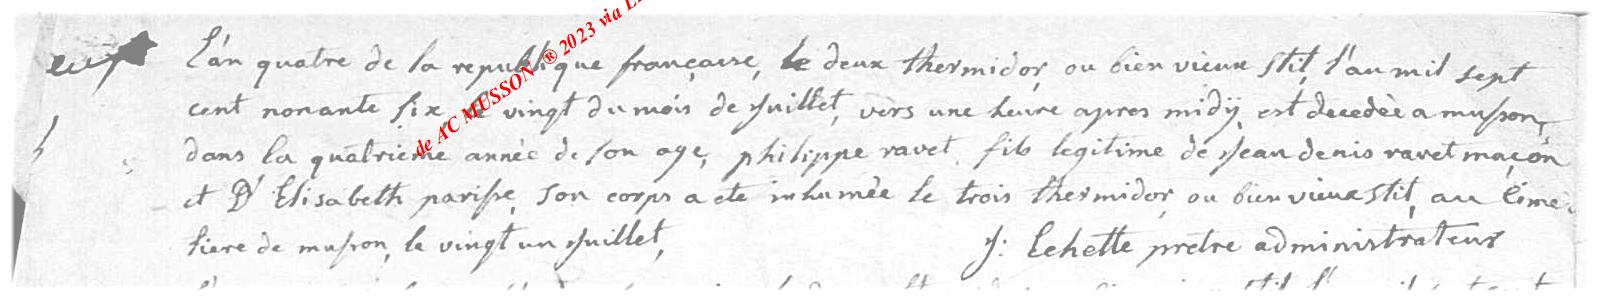 L'an quatre de la republique françaisse, le deux thermidor, ou bien vieux stil, l'an mil sept
cent nonante six, le vingt du mois de Juillet, vers une heure apres midÿ, est decedèe a musson,
dans la quatrieme annèe de son age, philippe ravet, fils legitime de Jean denis ravet maçon
et d' Elisabeth parisse, son corps a ete inhumèe le trois thermidor, ou bien vieux stil, au Cime-
tiere de musson, le vingt un Juillet,
J: Lehette pretre administrateur
de AC MUSSON ® 2023 via